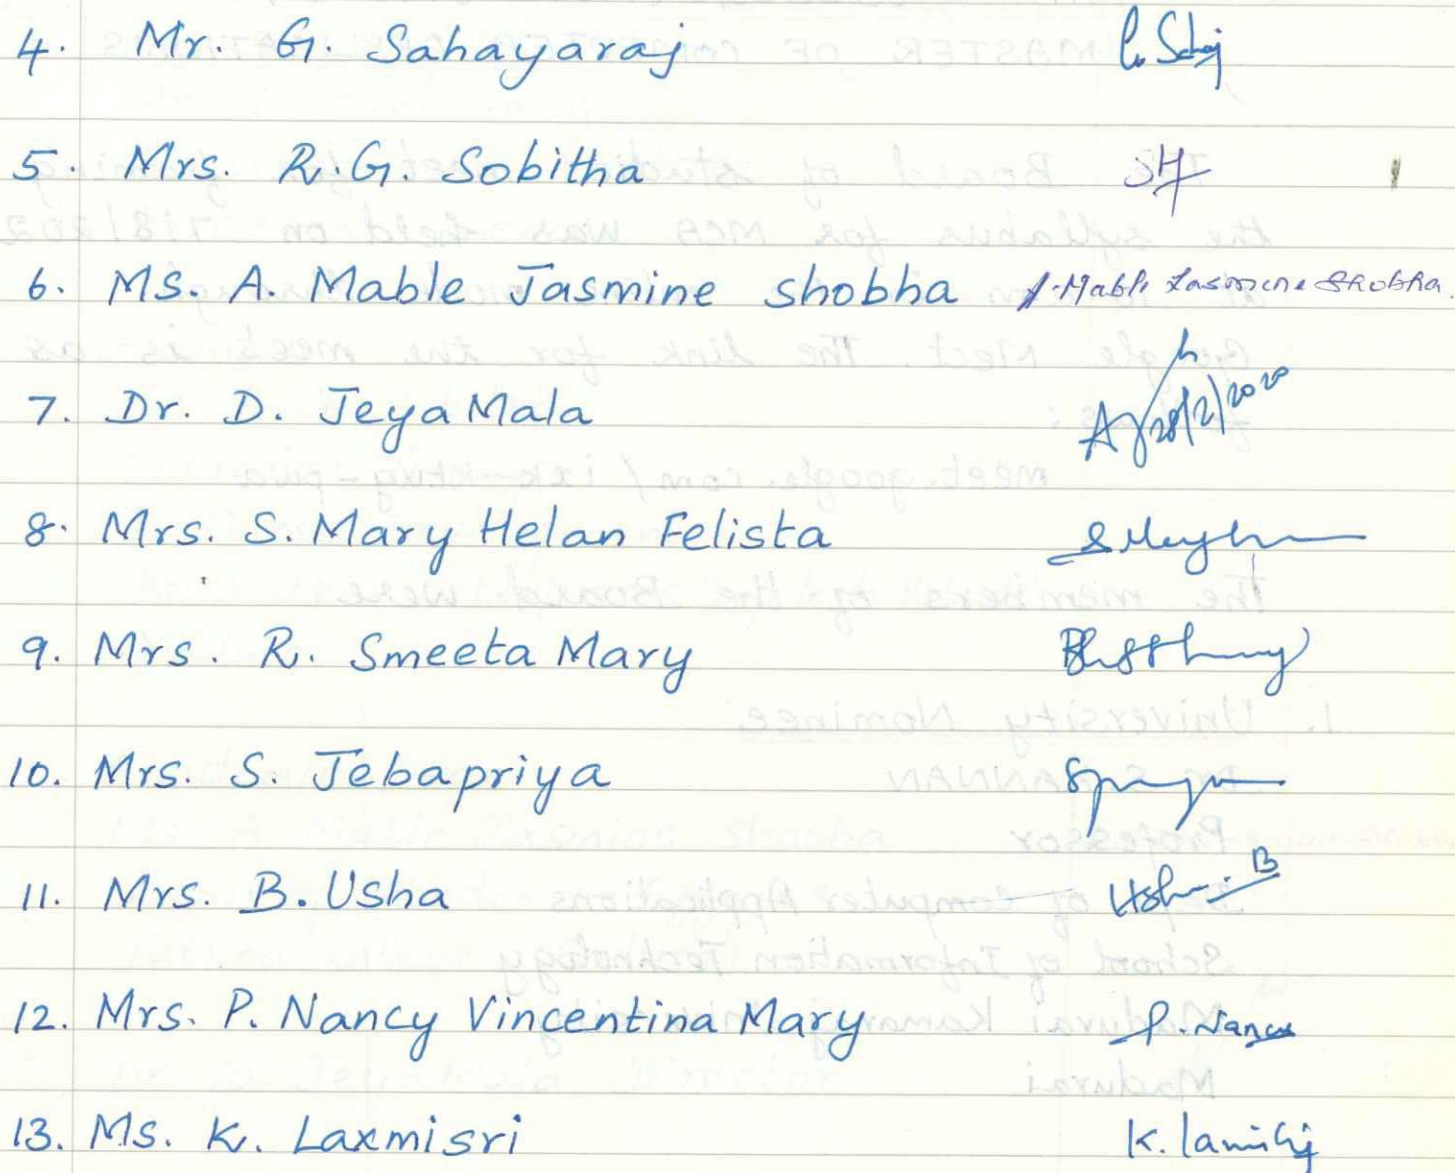 4. Mr. G. Sahayaraj
5. Mrs. R.G. Sobitha
6. Ms. A. Mable Jasmine shobha A. Mable Jasmine Shobha.
7. Dr. D. JeyaMala 28/2/2020
8. Mrs. S. Mary Helan Felista
9. Mrs. R. Smeeta Mary
10. Mrs. S. Jebapriya
11. Mrs. B. Usha Usha. B
12. Mrs. P. Nancy Vincentina Mary P. Nancy
13. Ms. K. Laxmisri